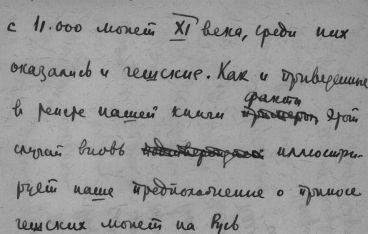 с 11.000 монет XI века, среди них
оказались и чешские. Как и приведенные
в реестре нашей книги факты этот
случай вновь иллюстри-
рует наше предположение о привозе
чешских монет на Русь